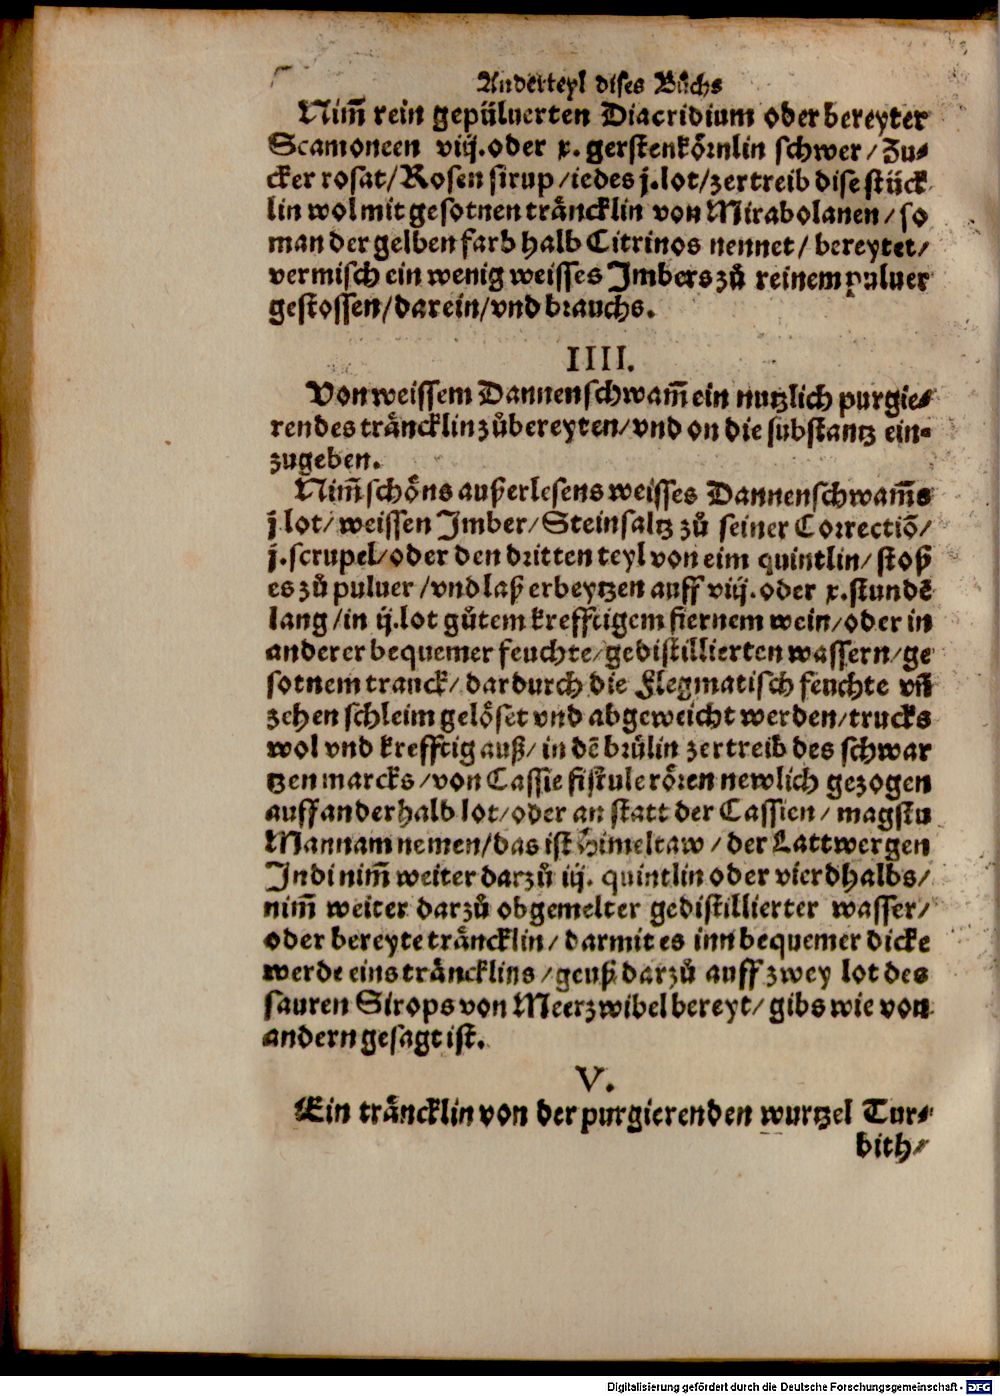 Anderteyl dises Bůchs
Nim̃ rein gepülverten Diacridium oder bereyter
Scamoneen viij. oder x. gerstenkörnlin schwer / Zu-
cker rosat / Rosen sirup / iedes j. lot / zertreib dise stück
lin wol mit gesotnen träncklin von Mirabolanen / so
man der gelben farb halb Citrinos nennet / bereytet /
vermisch ein wenig weisses Jmbers zů reinem puluer
gestossen / darein / vnd brauchs.
IIII.
Von weissem Dannenschwam̃ ein nutzlich purgie-
rendes träncklin zůbereyten / vnd on die substantz ein-
zugeben.
Nim̃ schöns außerlesens weisses Dannenschwam̃s
j lot / weissen Jmber / Steinsaltz zů seiner Correctiõ /
j. scrupel / oder den dritten teyl von eim quintlin / stoß
es zů puluer / vnd laß erbeytzen auff viij. oder x. stundẽ
lang / in ij. lot gůtem krefftigem fiernem wein / oder in
anderer bequemer feuchte / gedistillierten wassern / ge
sotnem tranck / dardurch die Flegmatisch feuchte vñ
zehen schleim gelöset vnd abgeweicht werden / trucks
wol vnd krefftig auß / in dẽ brülin zertreib des schwar
tzen marcks / von Cassie fistule rören newlich gezogen
auff anderhalb lot / oder an statt der Cassien / magstu
Mannam nemen / das ist Himeltaw / der Lattwergen
Indi nim̃ weiter darzů iij. quintlin oder vierdhalbs /
nim̃ weiter darzů obgemelter gedistillierter wasser /
oder bereyte träncklin / darmit es inn bequemer dicke
werde eins träncklins / geuß darzů auff zwey lot des
sauren Sirops von Meerzwibel bereyt / gibs wie von
andern gesagt ist.
V.
Ein träncklin von der purgierenden wurtzel Tur-
bith /
Digitalisierung gefördert durch die Deutsche Forschungsgemeinschaft - DFG